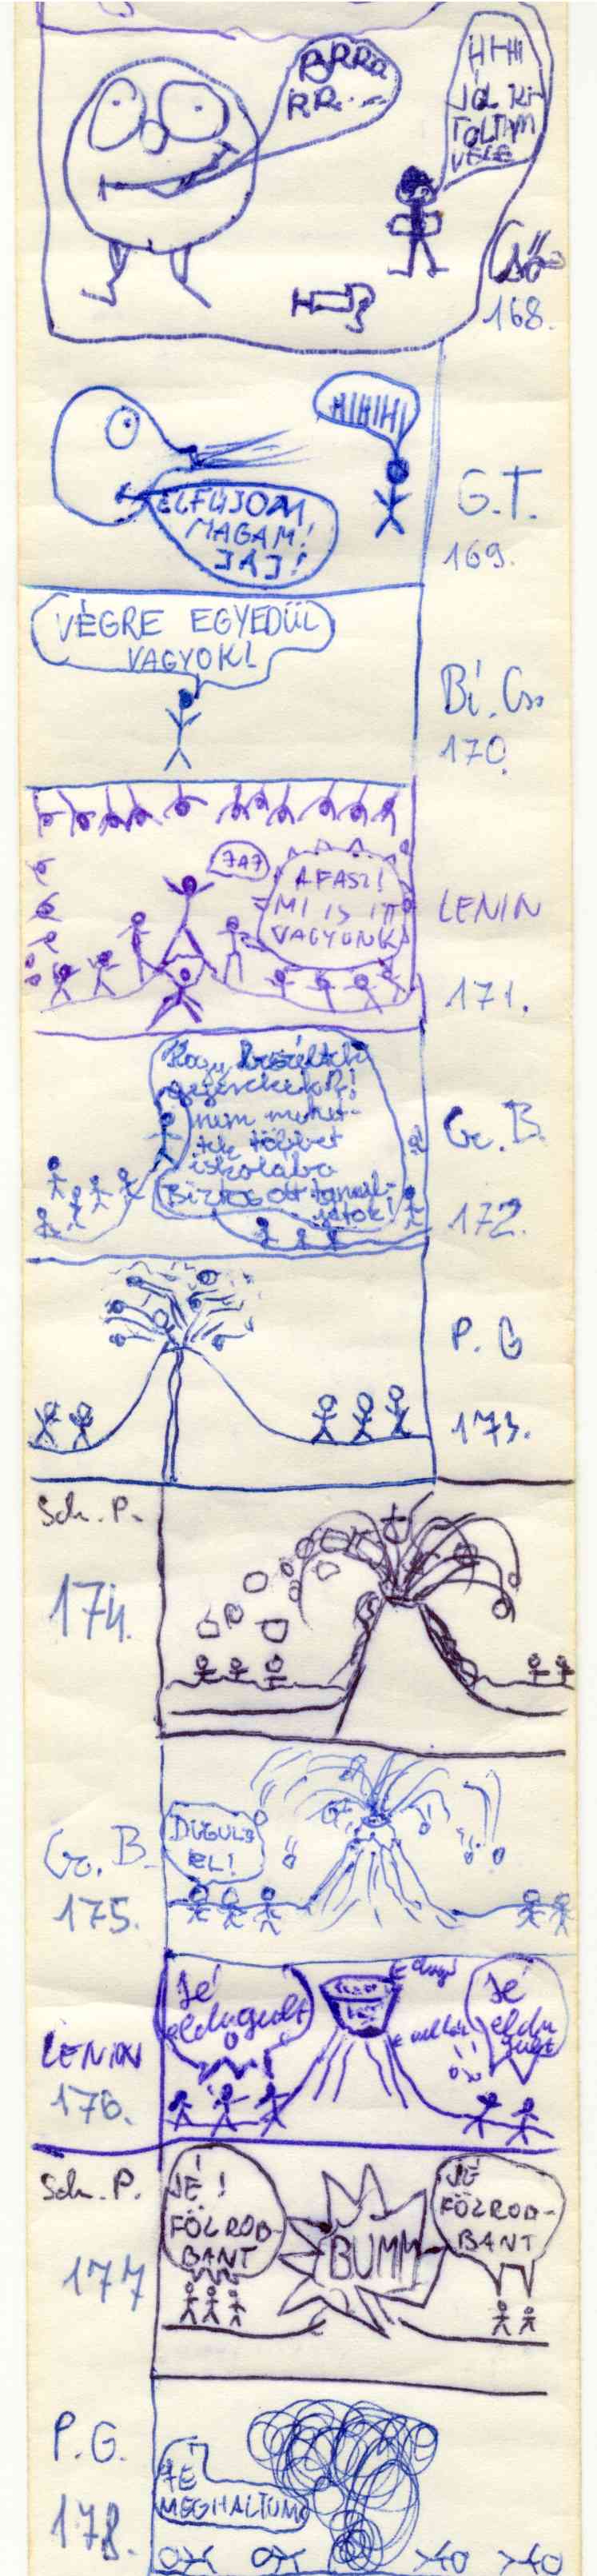 BRRR
RR...
HIHI
JÓL KI-
TOLTAM
VELE
Cső
168.
HIHIHI
ELFÚJOM
MAGAM!
JAJ!
G.T.
169.
VÉGRE EGYEDÜL
VAGYOK!
Bí. Cso
170.
A FASZ!
MI IS ITT
VAGYUNK
LENIN
171.
Hogy beszéltek
gyerekek?!
nem mehet-
tek többet
iskolába
Biztos ott tanul-
játok!
Gr. B.
172.
P. G
173.
Sch. P.
174.
DUGULJ
EL!
Gr. B.
175.
Jé
eldugult
dugó
Jé
eldu
gult
LENIN
176.
Sch. P.
JÉ!
FÖLROB-
BANT
BUMM
JÉ
FÖLROB-
BANT
177
P.G.
JÉ
MEGHALTUNK
178.